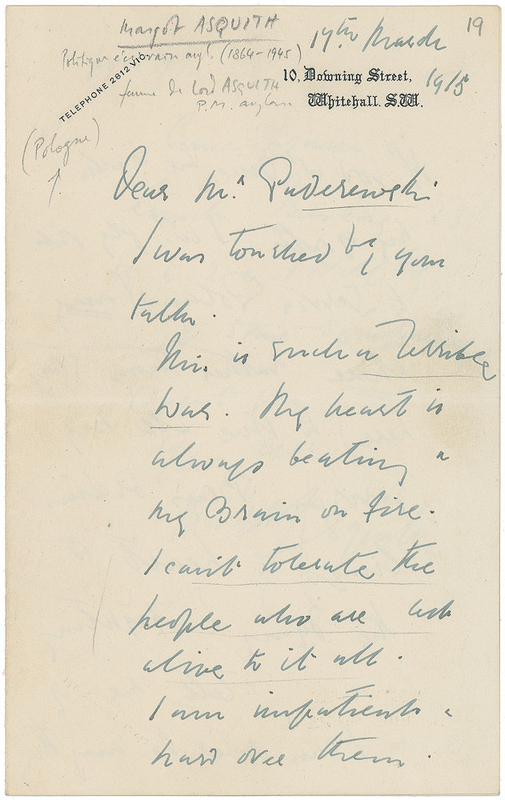 Margot ASQUITH
19
17th March
Politique écrivain angl. (1864-1945)
TELEPHONE 2812 VIC
10, Downing Street,
1915
femme de Lord ASQUITH
Whitehall. S.W.
P.M. anglais
(Pologne)
Dear Mr Paderewski
I was touched by your
talk.
This is such a terrible
war. My heart is
always beating &
my Brain on fire.
I can't tolerate the
people who are not
alive to it all.
I am impatient &
hard over them.